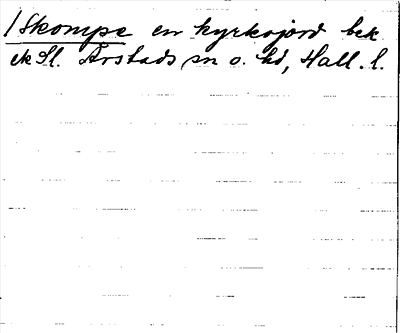 /Skompe en kyrkojord bek
Sl. Årstads sn o. hd, Hall. l.